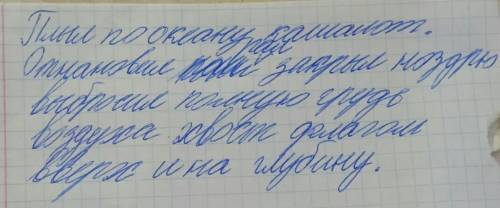 Плыл по океану кашалот.
Остановил рай закрыл ноздрю
выбросил полную грудь
воздуха хвост флагом
вверх и на глубину.